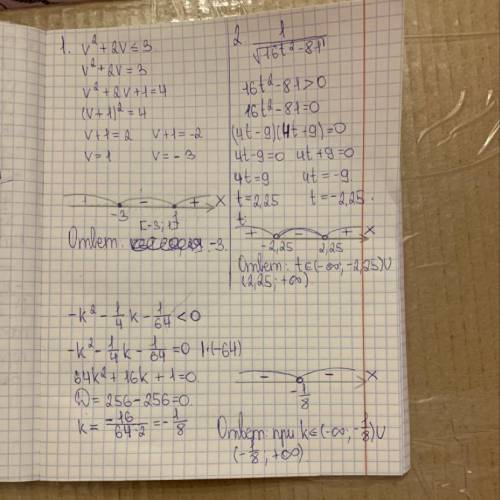 1. v² + 2v ≤ 3
v² + 2v = 3
v² + 2v + 1 = 4
(v + 1)² = 4
v + 1 = 2 v + 1 = -2
v = 1 v = -3
+ - + x
-3 1
[-3; 1]
Ответ: -3.
2 1/√(16t² - 81)
16t² - 81 > 0
16t² - 81 = 0
(4t - 9)(4t + 9) = 0
4t - 9 = 0 4t + 9 = 0
4t = 9 4t = -9
t = 2,25 t = -2,25.
t:
+ - + x
-2,25 2,25
Ответ: t∈(-∞; -2,25)∪
(2,25; +∞)
-k² - 1/4 k - 1/64 < 0
-k² - 1/4 k - 1/64 = 0 |·(-64)
64k² + 16k + 1 = 0
D = 256 - 256 = 0
k = -16/64·2 = -1/8
- - x
-1/8
Ответ: при k∈(-∞; -1/8)∪
(-1/8; +∞)